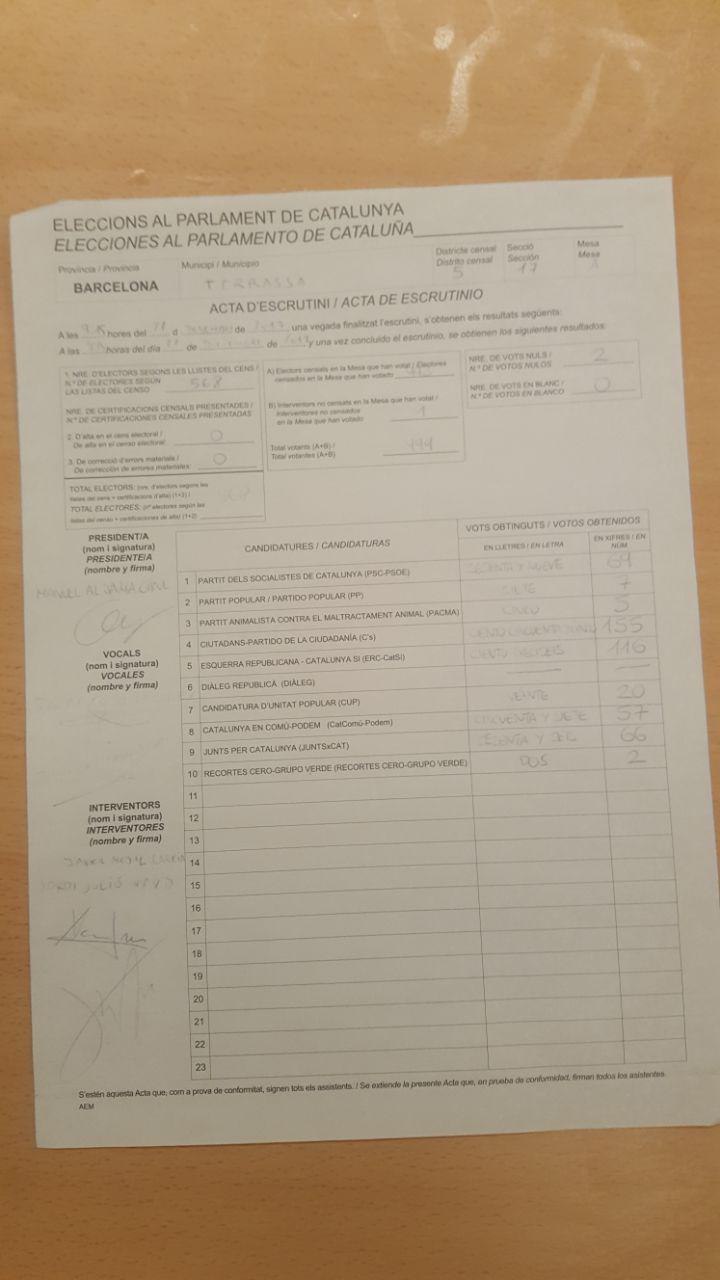 ELECCIONS AL PARLAMENT DE CATALUNYA
ELECCIONES AL PARLAMENTO DE CATALUÑA
Província / Provincia
BARCELONA
Municipi / Municipio
TERRASSA
Districte censal
Distrito censal
5
Secció
Sección
17
Mesa
Mesa
A
ACTA D'ESCRUTINI / ACTA DE ESCRUTINIO
A les hores del d de 2017, una vegada finalitzat l'escrutini, s'obtenen els resultats següents:
A las horas del día de de 2017 y una vez concluido el escrutinio, se obtienen los siguientes resultados:
1. NRE. D'ELECTORS SEGONS LES LLISTES DEL CENS /
N.º DE ELECTORES SEGÚN
LAS LISTAS DEL CENSO 568
NRE. DE CERTIFICACIONS CENSALS PRESENTADES /
N.º DE CERTIFICACIONES CENSALES PRESENTADAS
2. D'alta en el cens electoral /
De alta en el censo electoral: 0
3. De correcció d'errors materials /
De corrección de errores materiales: 0
TOTAL ELECTORS: (nre. d'electors segons les
llistes del cens + certificacions d'alta) (1+2) /
TOTAL ELECTORES: (nº electores según las
listas del censo + certificaciones de alta) (1+2) 568
A) Electors censats en la Mesa que han votat / Electores
censados en la Mesa que han votado
B) Interventors no censats en la Mesa que han votat /
Interventores no censados
en la Mesa que han votado 1
Total votants (A+B) /
Total votantes (A+B) 499
NRE. DE VOTS NULS /
N.º DE VOTOS NULOS 2
NRE. DE VOTS EN BLANC /
N.º DE VOTOS EN BLANCO 0
PRESIDENT/A
(nom i signatura)
PRESIDENTE/A
(nombre y firma)
MANUEL
VOCALS
(nom i signatura)
VOCALES
(nombre y firma)
INTERVENTORS
(nom i signatura)
INTERVENTORES
(nombre y firma)
JORDI JULIÓ
CANDIDATURES / CANDIDATURAS
VOTS OBTINGUTS / VOTOS OBTENIDOS
EN LLETRES / EN LETRA
EN XIFRES / EN NÚM
1 PARTIT DELS SOCIALISTES DE CATALUNYA (PSC-PSOE) SESENTA Y NUEVE 69
2 PARTIT POPULAR / PARTIDO POPULAR (PP) SIETE 7
3 PARTIT ANIMALISTA CONTRA EL MALTRACTAMENT ANIMAL (PACMA) CINCO 5
4 CIUTADANS-PARTIDO DE LA CIUDADANÍA (C's) 155
5 ESQUERRA REPUBLICANA - CATALUNYA SÍ (ERC-CatSí) CIENTO DIECISEIS 116
6 DIÀLEG REPUBLICÀ (DIÀLEG)
7 CANDIDATURA D'UNITAT POPULAR (CUP) VEINTE 20
8 CATALUNYA EN COMÚ-PODEM (CatComú-Podem) CINCUENTA Y SIETE 57
9 JUNTS PER CATALUNYA (JUNTSxCAT) SESENTA Y SEIS 66
10 RECORTES CERO-GRUPO VERDE (RECORTES CERO-GRUPO VERDE) DOS 2
11
12
13
14
15
16
17
18
19
20
21
22
23
S'estén aquesta Acta que, com a prova de conformitat, signen tots els assistents. / Se extiende la presente Acta que, en prueba de conformidad, firman todos los asistentes.
AEM